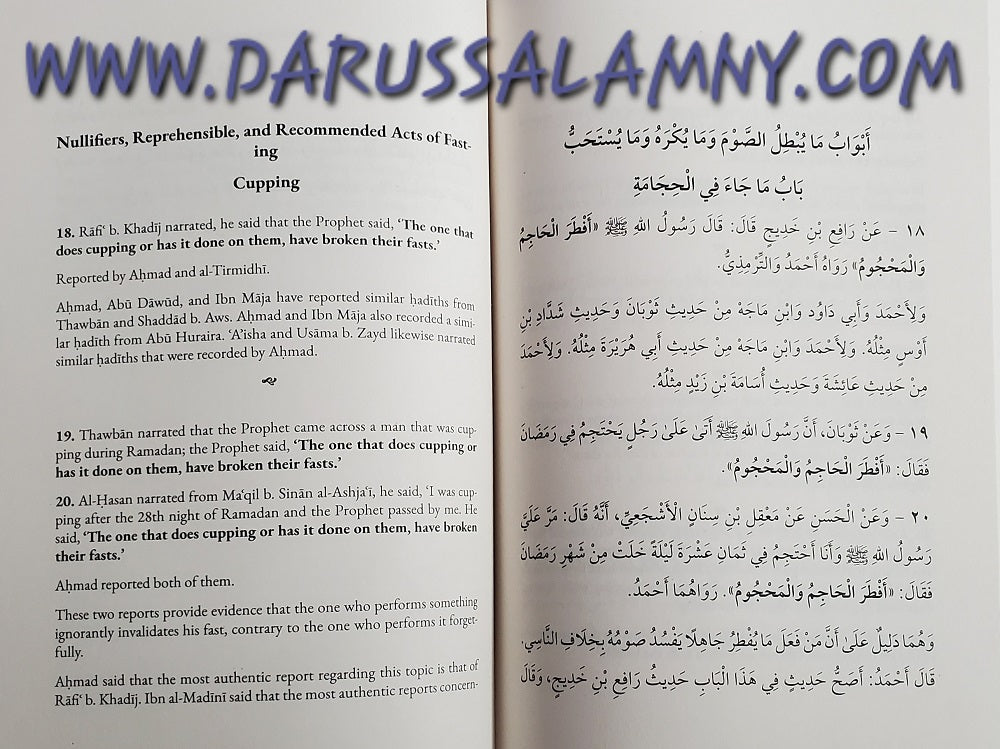 WWW.DARUSSALAMNY.COM
Nullifiers, Reprehensible, and Recommended Acts of Fast-
ing
Cupping
18. Rāfiʿ b. Khadīj narrated, he said that the Prophet said, ‘The one that
does cupping or has it done on them, have broken their fasts.’
Reported by Aḥmad and al-Tirmidhī.
Aḥmad, Abū Dāwūd, and Ibn Māja have reported similar ḥadīths from
Thawbān and Shaddād b. Aws. Aḥmad and Ibn Māja also recorded a simi-
lar ḥadīth from Abū Huraira. ʿA’isha and Usāma b. Zayd likewise narrated
similar ḥadīths that were recorded by Aḥmad.
19. Thawbān narrated that the Prophet came across a man that was cup-
ping during Ramadan; the Prophet said, ‘The one that does cupping or
has it done on them, have broken their fasts.’
20. Al-Ḥasan narrated from Maʿqil b. Sinān al-Ashjaʿī, he said, ‘I was cup-
ping after the 28th night of Ramadan and the Prophet passed by me. He
said, ‘The one that does cupping or has it done on them, have broken
their fasts.’
Aḥmad reported both of them.
These two reports provide evidence that the one who performs something
ignorantly invalidates his fast, contrary to the one who performs it forget-
fully.
Aḥmad said that the most authentic report regarding this topic is that of
Rāfiʿ b. Khadīj. Ibn al-Madīnī said that the most authentic reports concern-
أَبْوَابُ مَا يُبْطِلُ الصَّوْمَ وَمَا يُكْرَهُ وَمَا يُسْتَحَبُّ
بَابُ مَا جَاءَ فِي الْحِجَامَةِ
١٨ – عَنْ رَافِعِ بْنِ خَدِيجٍ قَالَ: قَالَ رَسُولُ اللهِ ﷺ «أَفْطَرَ الْحَاجِمُ
وَالْمَحْجُومُ» رَوَاهُ أَحْمَدُ وَالتِّرْمِذِيُّ.
وَلِأَحْمَدَ وَأَبِي دَاوُد وَابْنِ مَاجَهْ مِنْ حَدِيثِ ثَوْبَانَ وَحَدِيثِ شَدَّادِ بْنِ
أَوْسٍ مِثْلُهُ. وَلِأَحْمَدَ وَابْنِ مَاجَهْ مِنْ حَدِيثِ أَبِي هُرَيْرَةَ مِثْلُهُ. وَلِأَحْمَدَ
مِنْ حَدِيثِ عَائِشَةَ وَحَدِيثِ أُسَامَةَ بْنِ زَيْدٍ مِثْلُهُ.
١٩ – وَعَنْ ثَوْبَانَ، أَنَّ رَسُولَ اللهِ ﷺ أَتَىٰ عَلَىٰ رَجُلٍ يَحْتَجِمُ فِي رَمَضَانَ
فَقَالَ: «أَفْطَرَ الْحَاجِمُ وَالْمَحْجُومُ».
٢٠ – وَعَنْ الْحَسَنِ عَنْ مَعْقِلِ بْنِ سِنَانٍ الْأَشْجَعِيِّ، أَنَّهُ قَالَ: مَرَّ عَلَيَّ
رَسُولُ اللهِ ﷺ وَأَنَا أَحْتَجِمُ فِي ثَمَانِ عَشْرَةَ لَيْلَةً خَلَتْ مِنْ شَهْرِ رَمَضَانَ
فَقَالَ: «أَفْطَرَ الْحَاجِمُ وَالْمَحْجُومُ». رَوَاهُمَا أَحْمَدُ.
وَهُمَا دَلِيلٌ عَلَىٰ أَنَّ مَنْ فَعَلَ مَا يُفْطِرُ جَاهِلًا يَفْسُدُ صَوْمُهُ بِخِلَافِ النَّاسِي.
قَالَ أَحْمَدُ: أَصَحُّ حَدِيثٍ فِي هَذَا الْبَابِ حَدِيثُ رَافِعِ بْنِ خَدِيجٍ، وَقَالَ